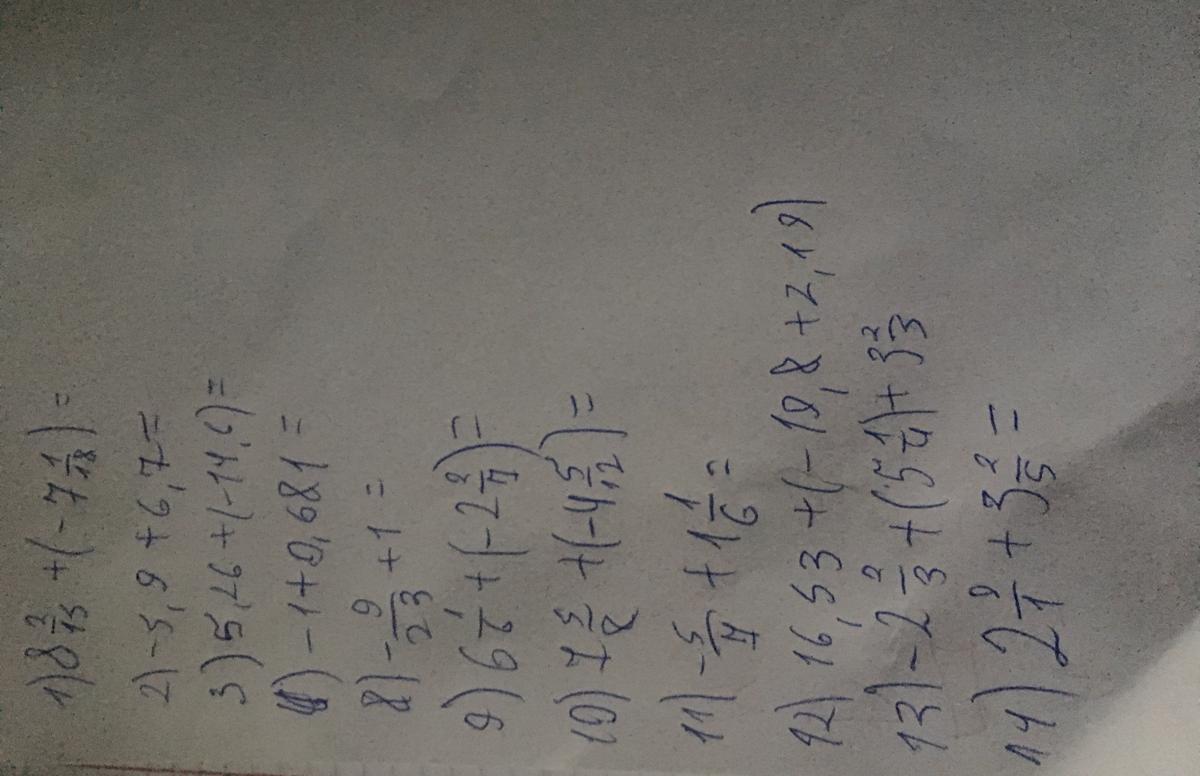 1) 8 2/15 + (- 7 1/18) =
2) -5,9 + 6,7 =
3) 5,26 + (-14,4) =
4) -1 + 0,681 =
8) - 9/23 + 1 =
9) 6 1/6 + (-2 2/7) =
10) 7 5/8 + (-4 5/12) =
11) - 5/7 + 1 1/6 =
12) 16,53 + (- 19,8 + 2,19)
13) - 2 2/3 + (5 1/4) + 3 2/3
14) 2 9/1 + 3 2/5 =